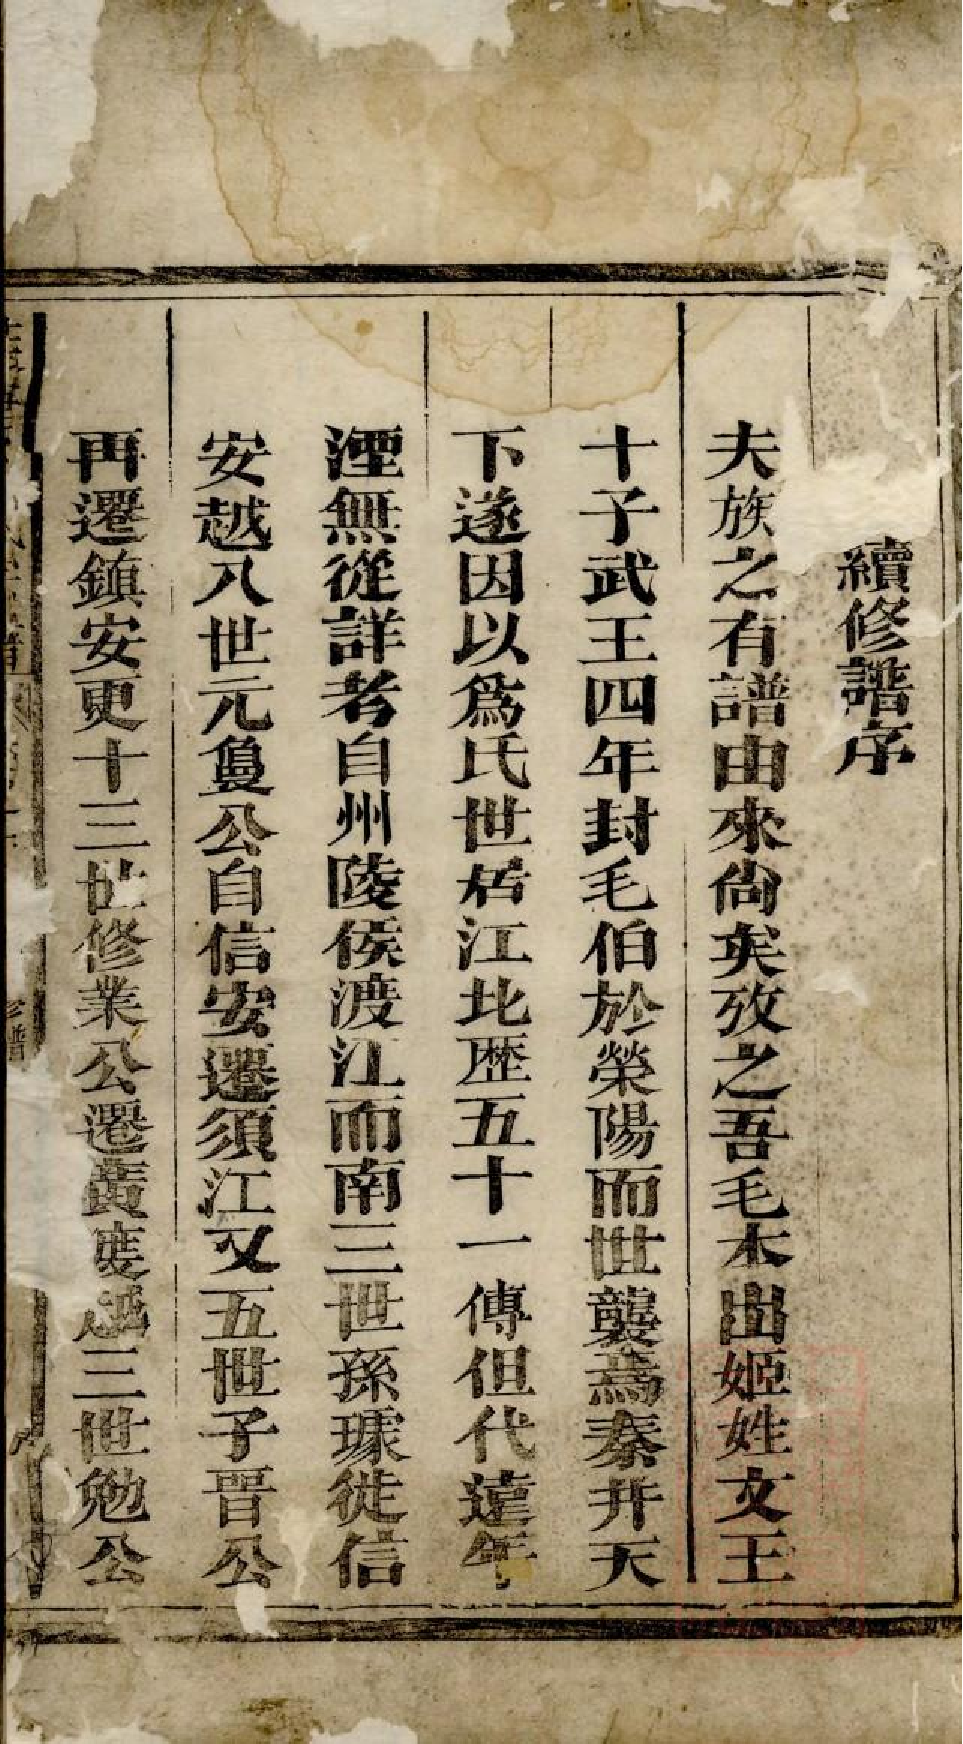 續修譜序
夫族之有譜由來尙矣攷之吾毛本出姬姓文王
十子武王四年封毛伯於榮陽而世襲焉秦幷天
下遂因以爲氏世居江北歷五十一傳但代遠年
湮無從詳考自州陵侯渡江而南三世孫璩徙信
安越八世元㒷公自信安遷須江又五世子晋公
再遷鎮安更十三世修業公遷黃㢞越三世勉公